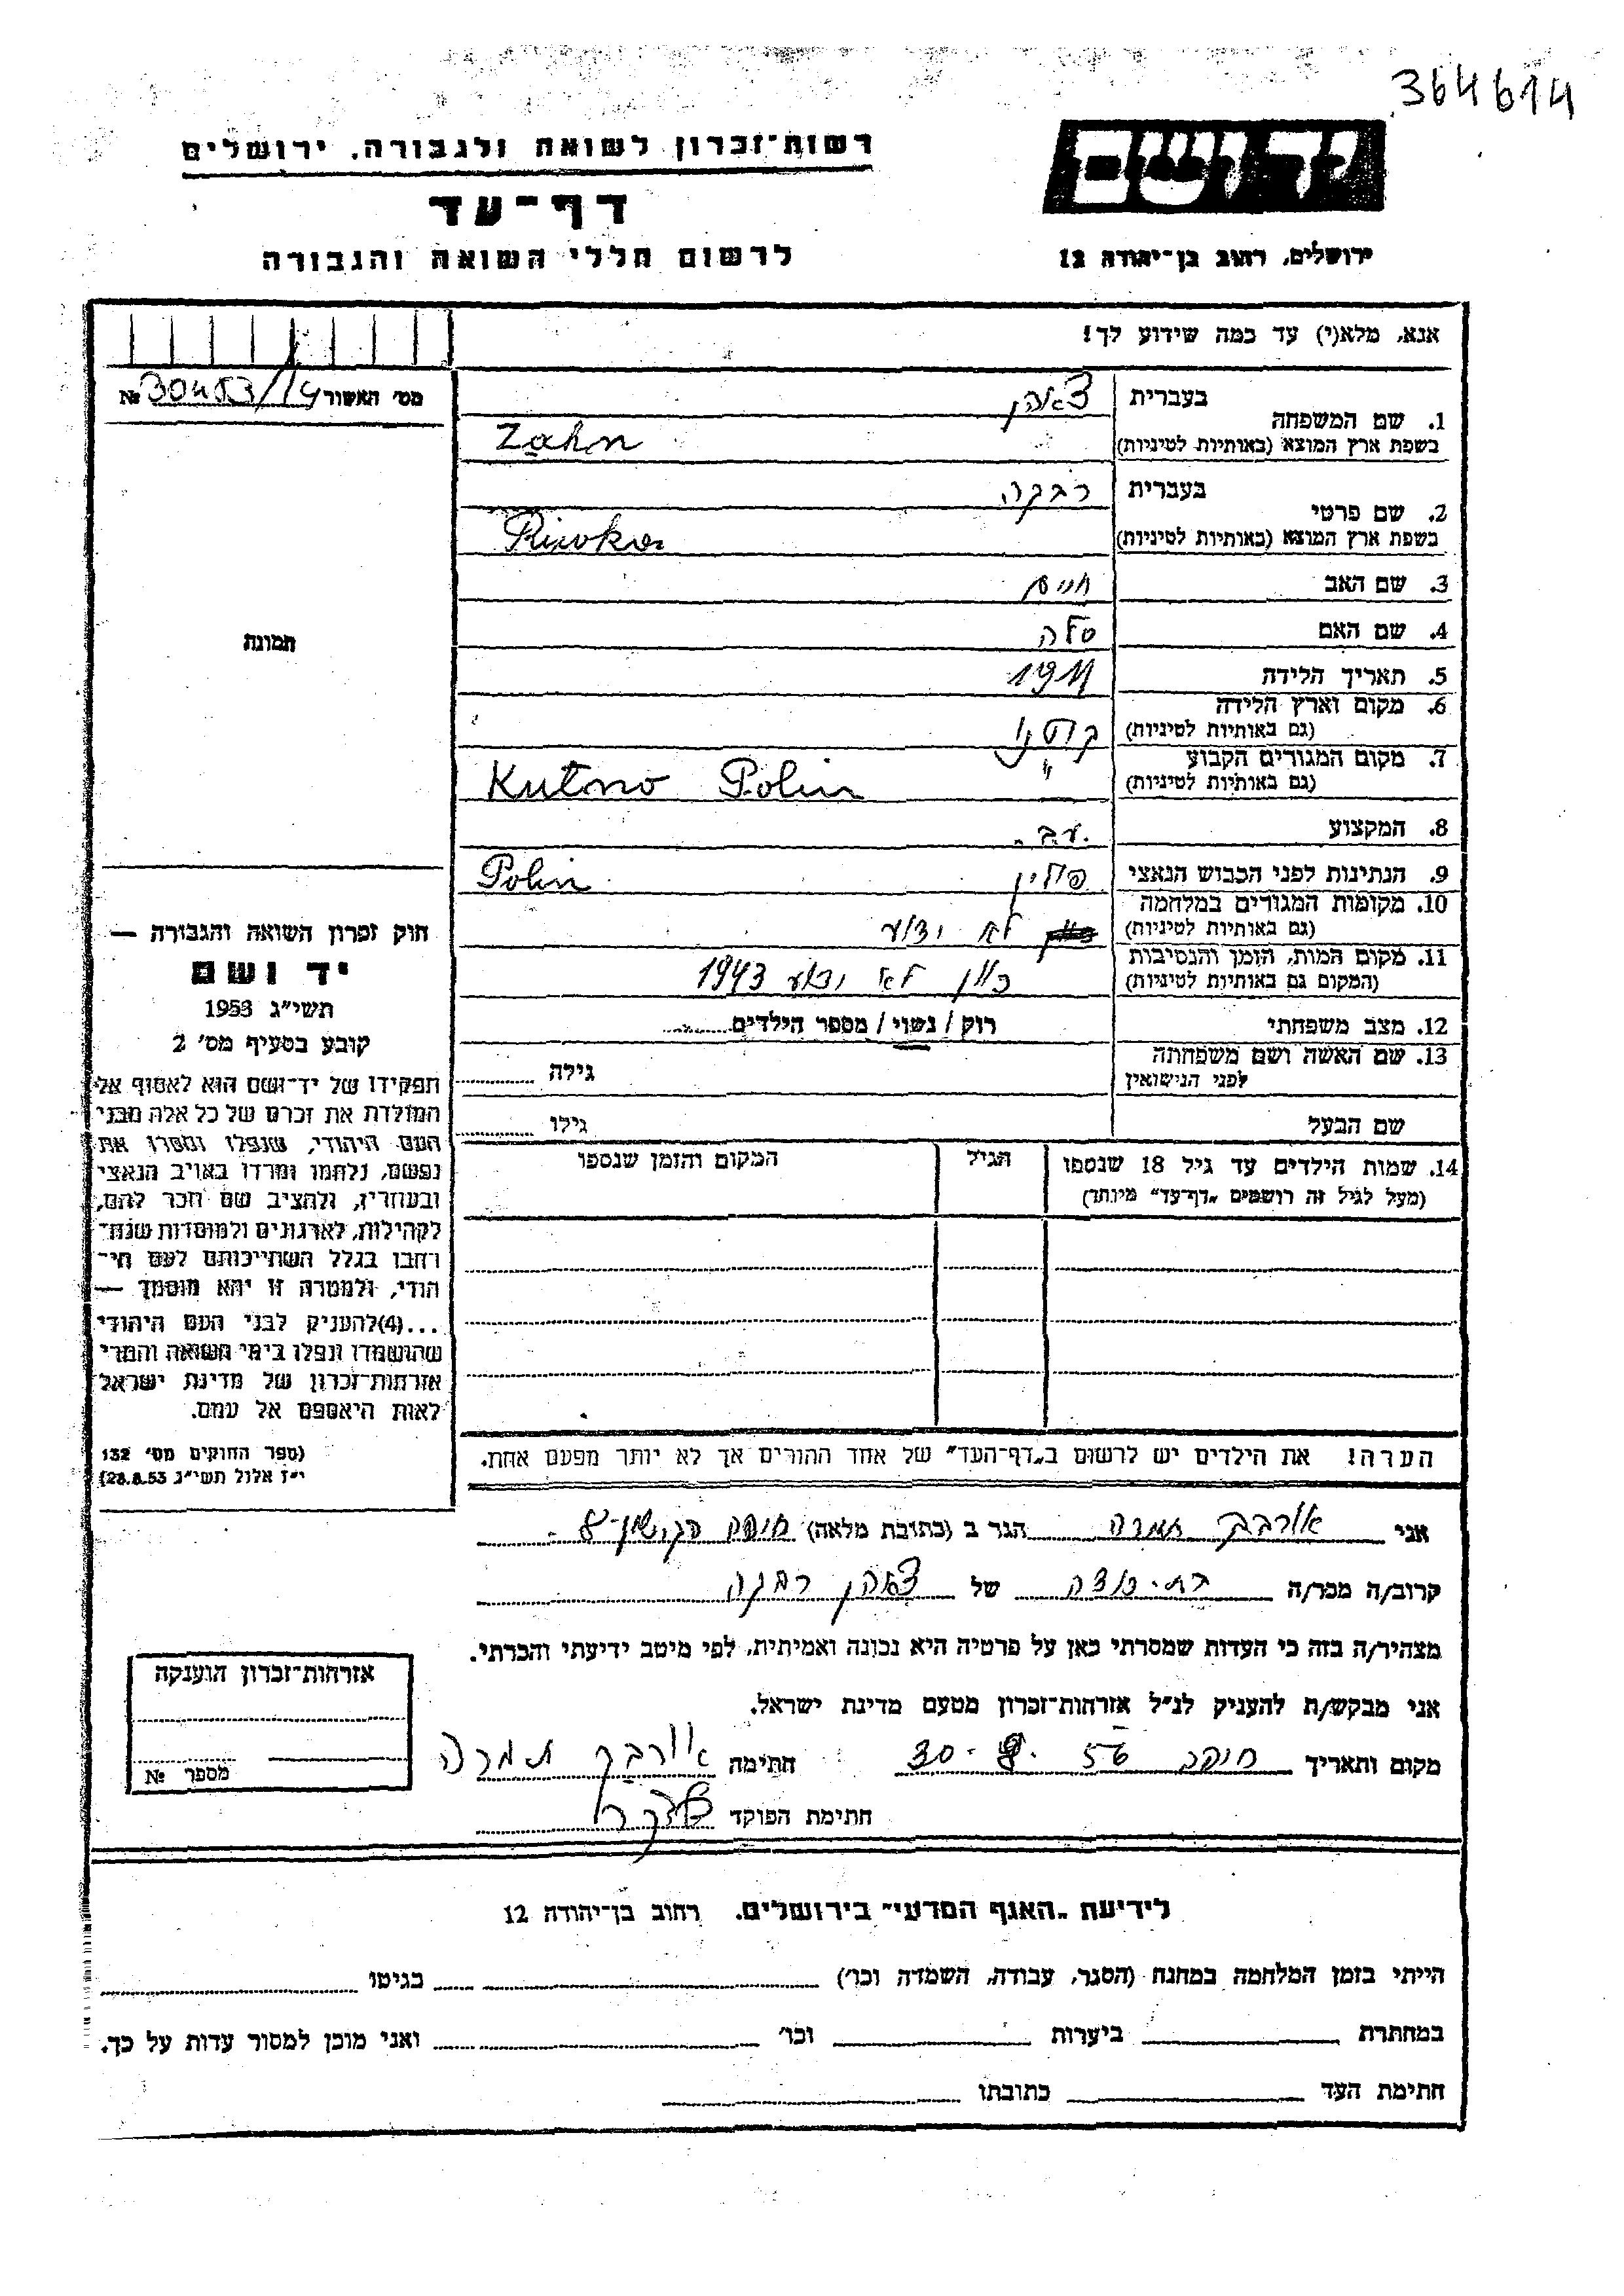 364614
רשות־זכרון לשואה ולגבורה, ירושלים
יד ושם
דף־עד
לרשום חללי השואה והגבורה
ירושלים, רחוב בן־יהודה 12
אנא, מלא(י) עד כמה שידוע לך!
מס' האשור 30453/14 №
בעברית צאהן
1. שם המשפחה
בשפת ארץ המוצא (באותיות לטיניות) Zahn
בעברית רבקה
2. שם פרטי
בשפת ארץ המוצא (באותיות לטיניות) Riwka
3. שם האב חיים
4. שם האם
5. תאריך הלידה 1911
6. מקום וארץ הלידה
(גם באותיות לטיניות) קוטנו
7. מקום המגורים הקבוע "
(גם באותיות לטיניות) Kutno Polin
8. המקצוע
9. הנתינות לפני הכבוש הנאצי פולין Polin
10. מקומות המגורים במלחמה
(גם באותיות לטיניות) לא ידוע
11. מקום המות, הזמן והנסיבות
(המקום גם באותיות לטיניות) לא ידוע 1943
12. מצב משפחתי רוק / נשוי / מספר הילדים
13. שם האשה ושם משפחתה
לפני הנישואין גילה
שם הבעל גילו
14. שמות הילדים עד גיל 18 שנספו הגיל המקום והזמן שנספו
(מעל לגיל זה רושמים „דף־עד" מיוחד)
הערה! את הילדים יש לרשום ב„דף־העד" של אחד ההורים אך לא יותר מפעם אחת.
תמונה
חוק זכרון השואה והגבורה —
יד ושם
תשי"ג 1953
קובע בסעיף מס' 2
תפקידו של יד־ושם הוא לאסוף אל
המולדת את זכרם של כל אלה מבני
העם היהודי, שנפלו ומסרו את
נפשם, נלחמו ומרדו באויב הנאצי
ובעוזריו, ולהציב שם וזכר להם,
לקהילות, לארגונים ולמוסדות שנח־
רבו בגלל השתייכותם לעם הי־
הודי, ולמטרה זו יהא מוסמך —
...(4)להעניק לבני העם היהודי
שהושמדו ונפלו בימי השואה והמרי
אזרחות־זכרון של מדינת ישראל
לאות היאספם אל עמם.
(ספר החוקים מס' 132
י"ז אלול תשי"ג 28.8.53)
אני אורבך תמרה הגר ב (כתובת מלאה) חיפה
קרוב/ה מכר/ה בת-דודה של צאהן רבקה
מצהיר/ה בזה כי העדות שמסרתי כאן על פרטיה היא נכונה ואמיתית, לפי מיטב ידיעתי והכרתי.
אני מבקש/ת להעניק לנ"ל אזרחות־זכרון מטעם מדינת ישראל.
מקום ותאריך חיפה חתימה אורבך תמרה
חתימת הפוקד
אזרחות־זכרון הוענקה
מספר №
לידיעת „האגף המדעי" בירושלים, רחוב בן־יהודה 12
הייתי בזמן המלחמה במחנה (הסגר, עבודה, השמדה וכו') בגיטו
במחתרת ביערות וכו' ואני מוכן למסור עדות על כך.
חתימת העד כתובתו